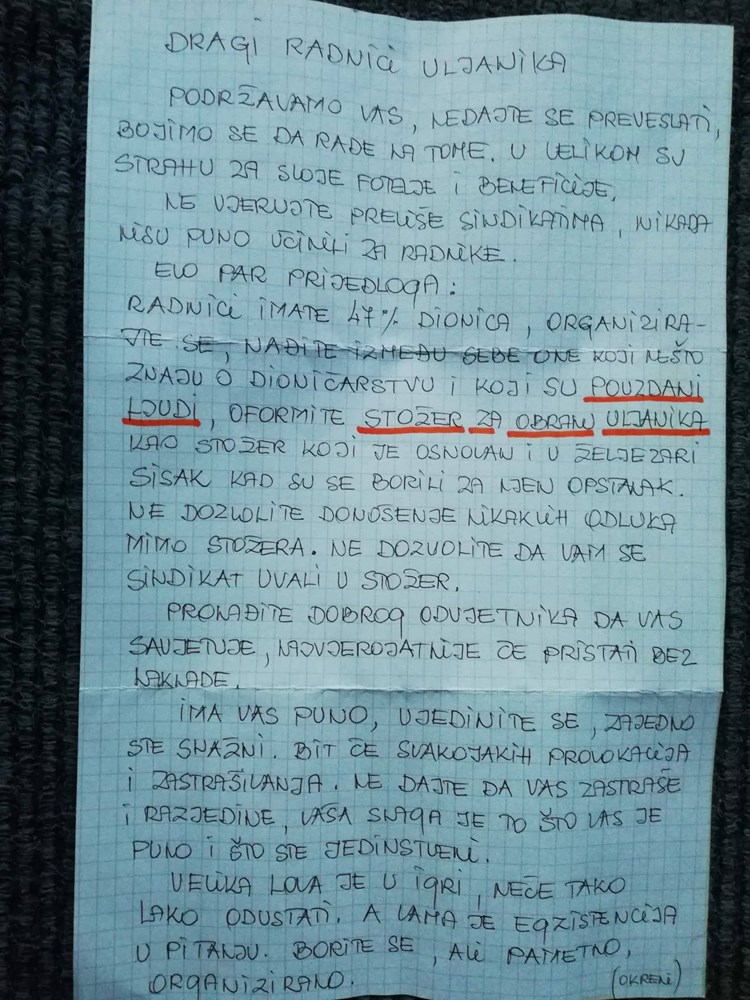 DRAGI RADNICI ULJANIKA
PODRŽAVAMO VAS, NEDAJTE SE PREVESLATI,
BOJIMO SE DA RADE NA TOME. U VELIKOM SU
STRAHU ZA SVOJE FOTELJE I BENEFICIJE.
NE VJERUJTE PREVIŠE SINDIKATIMA, NIKADA
NISU PUNO UČINILI ZA RADNIKE.
EVO PAR PRIJEDLOGA:
RADNICI IMATE 47% DIONICA, ORGANIZIRA-
JTE SE, NAĐITE IZMEĐU SEBE ONE KOJI NEŠTO
ZNAJU O DIONIČARSTVU I KOJI SU POUZDANI
LJUDI, OFORMITE STOŽER ZA OBRANU ULJANIKA
KAO STOŽER KOJI JE OSNOVAN I U ŽELJEZARI
SISAK KAD SU SE BORILI ZA NJEN OPSTANAK.
NE DOZVOLITE DONOŠENJE NIKAKVIH ODLUKA
MIMO STOŽERA. NE DOZVOLITE DA VAM SE
SINDIKAT UVALI U STOŽER.
PRONAĐITE DOBROG ODVJETNIKA DA VAS
SAVJETUJE, NAJVJEROJATNIJE ĆE PRISTATI BEZ
NAKNADE.
IMA VAS PUNO, UJEDINITE SE, ZAJEDNO
STE SNAŽNI. BIT ĆE SVAKOJAKIH PROVOKACIJA
I ZASTRAŠIVANJA. NE DAJTE DA VAS ZASTRAŠE
I RAZJEDINE, VAŠA SNAGA JE TO ŠTO VAS JE
PUNO I ŠTO STE JEDINSTVENI.
VELIKA LOVA JE U IGRI, NEĆE TAKO
LAKO ODUSTATI. A VAMA JE EGZISTENCIJA
U PITANJU. BORITE SE, ALI PAMETNO,
ORGANIZIRANO.
(OKRENI)